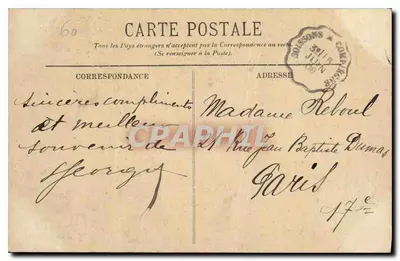 60
CARTE POSTALE
Tous les Pays étrangers n'acceptent pas la Correspondance au verso.
(Se renseigner à la Poste).
SOISSONS À COMPIÈGNE
JUIN
CORRESPONDANCE
ADRESSE
Sincères compliments
et meilleur
souvenir de
Georges
Madame Reboul
21 Rue Jean Baptiste Dumas
Paris
17e
CPARAMA